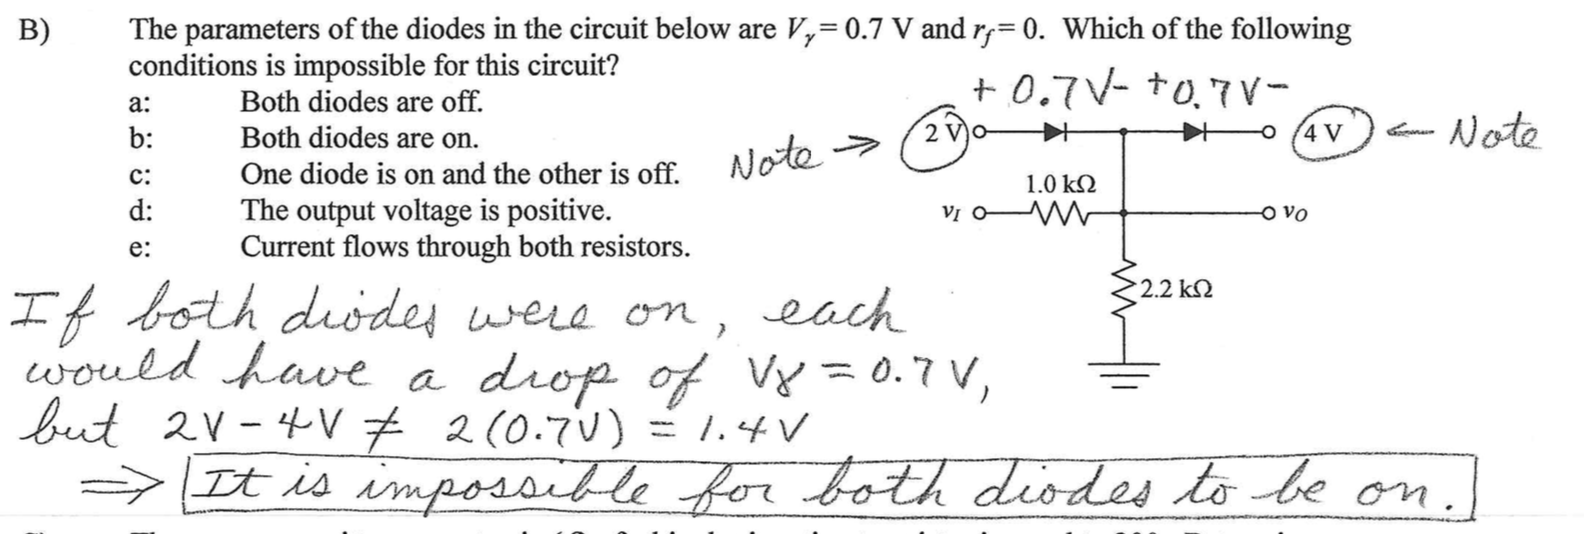 B) The parameters of the diodes in the circuit below are Vγ = 0.7 V and rf = 0. Which of the following
conditions is impossible for this circuit?
a: Both diodes are off.
b: Both diodes are on.
c: One diode is on and the other is off.
d: The output voltage is positive.
e: Current flows through both resistors.
+ 0.7V- +0.7V-
Note → 2 V 4 V ← Note
1.0 kΩ
vI vO
2.2 kΩ
If both diodes were on, each
would have a drop of Vγ = 0.7 V,
but 2V - 4V ≠ 2(0.7V) = 1.4V
⇒ It is impossible for both diodes to be on.